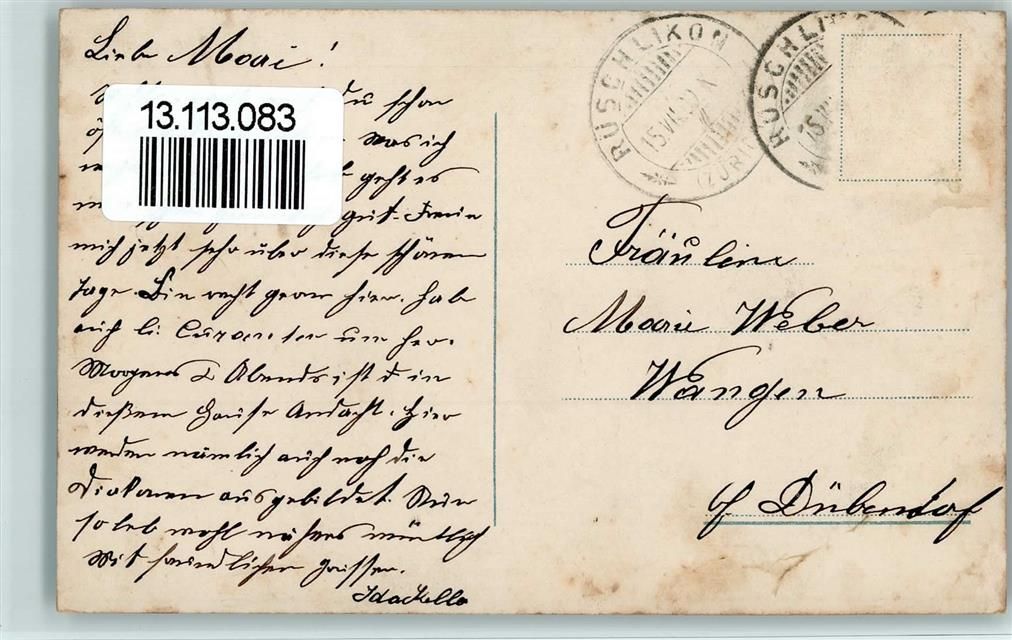 Liebe Marie!
du schon
13.113.083
was ich
geht es
gut. Freue
mich jetzt sehr über diese schönen
Tage. Bin recht gern hier. habe
auch li. um her.
Morgens & Abends ist d in
dießem Hause Andacht. Hier
werden nämlich auch noch die
Diakonen ausgebildet. Nun
so leb wohl näheres mündlich
Mit freundlichen Grüssen.
Ida
RÜSCHLIKON
15.VII.
(ZÜRICH)
RÜSCHLI
Fräulein
Marie Weber
Wangen
b/ Dübendorf